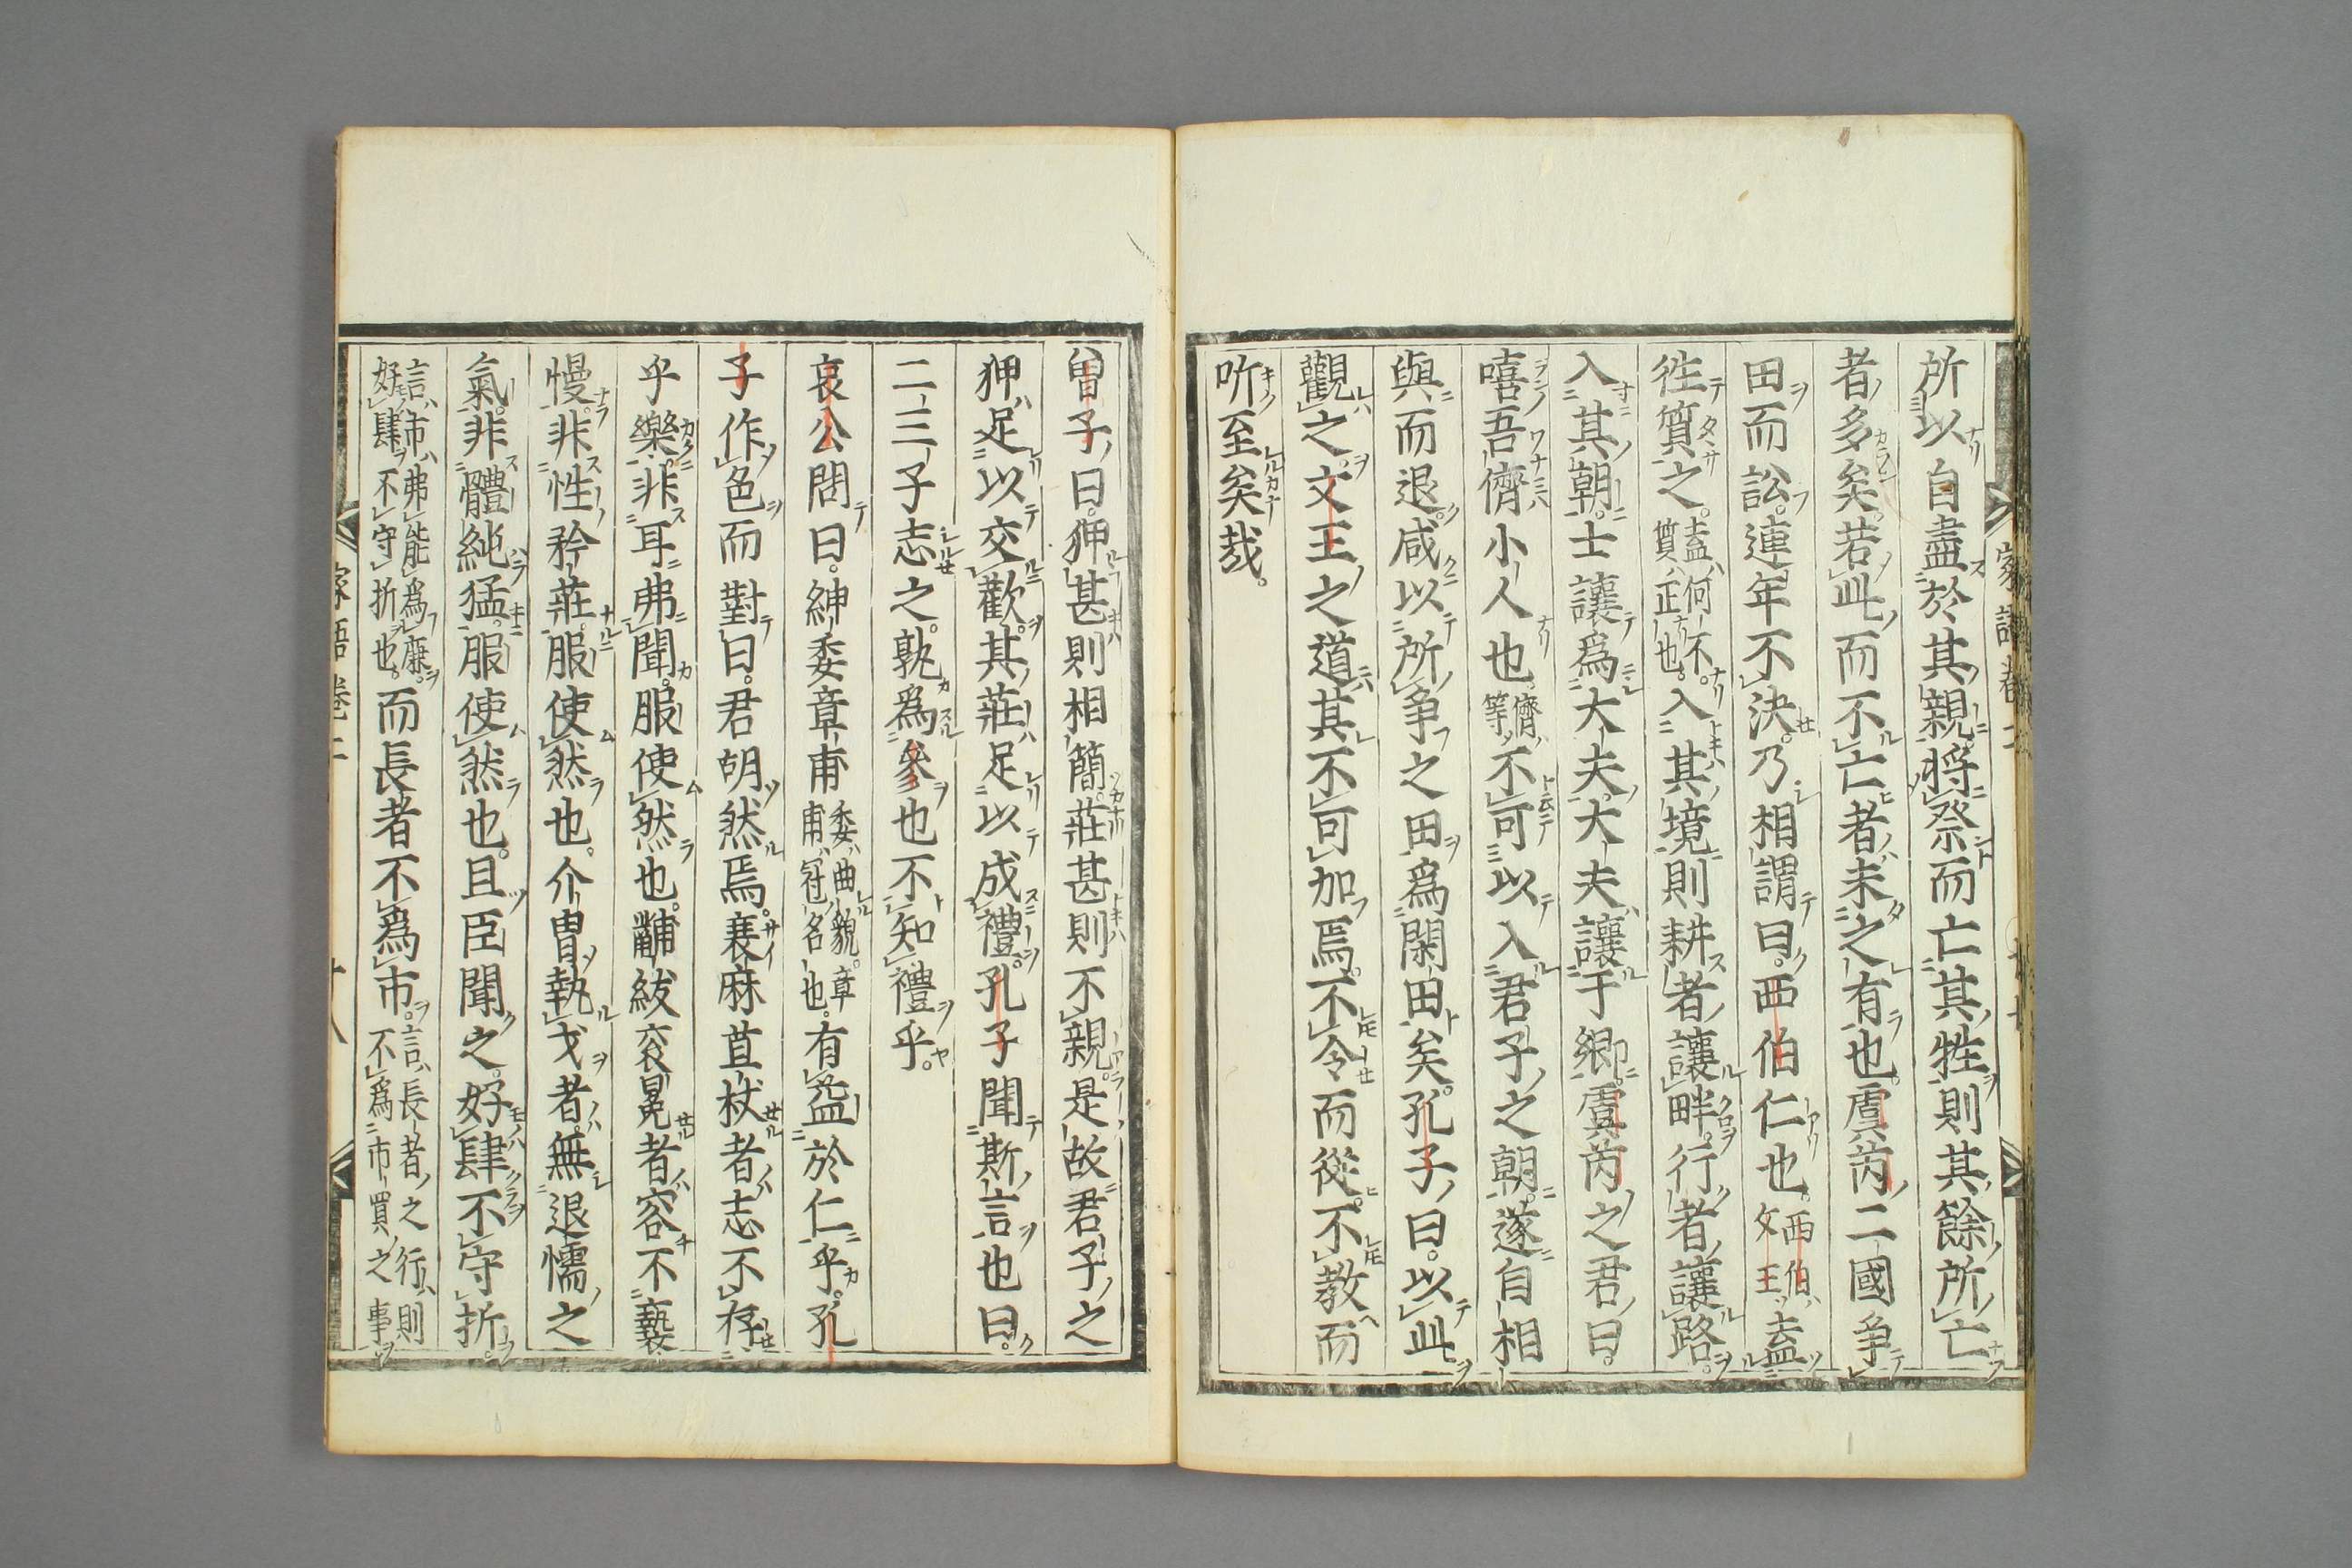 所以自盡於其親將祭而亡其牲則其餘所亡
者多矣若此而不亡者未之有也虞芮二國爭
田而訟連年不決乃相謂曰西伯仁也西伯文王盍
往質之盍何不質正也入其境則耕者讓畔行者讓路
入其朝士讓爲大夫大夫讓于卿虞芮之君曰
嘻吾儕小人也儕等不可以入君子之朝遂自相
與而退咸以所爭之田爲閑田矣孔子曰以此
觀之文王之道其不可加焉不令而從不教而
听至矣哉
曾子曰狎甚則相簡莊甚則不親是故君子之
狎足以交歡其莊足以成禮孔子聞斯言也曰
二三子志之孰爲參也不知禮乎
哀公問曰紳委章甫委曲貌章甫冠名也有益於仁乎孔
子作色而對曰君胡然焉衰麻苴杖者志不存
乎樂非耳弗聞服使然也黼紱衮冕者容不褻
慢非性矜莊服使然也介冑執戈者無退懦之
氣非體純猛服使然也且臣聞之好肆不守折
言市弗能爲廉好肆不守折也而長者不爲市言長者之行則不爲市買之事